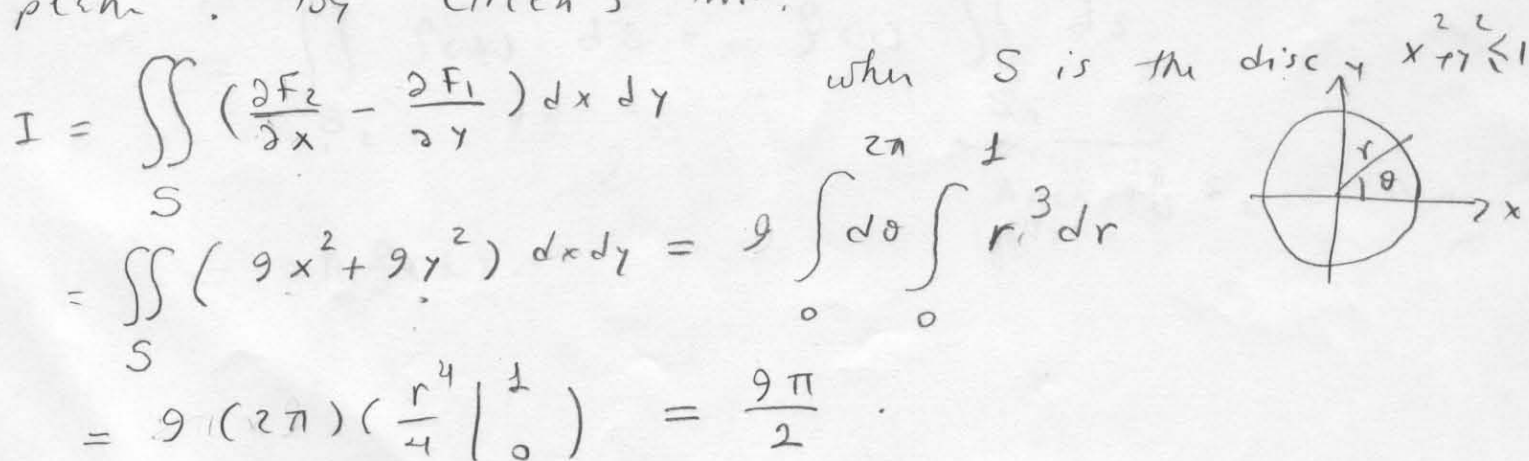 I = ∬_S (∂F₂/∂x − ∂F₁/∂y) dx dy when S is the disc x²+y² ≤ 1
y
r
θ
x
= ∬_S (9x² + 9y²) dxdy = 9 ∫₀^{2π} dθ ∫₀^1 r³ dr
= 9 (2π) (r⁴/4 |₀^1) = 9π/2 .